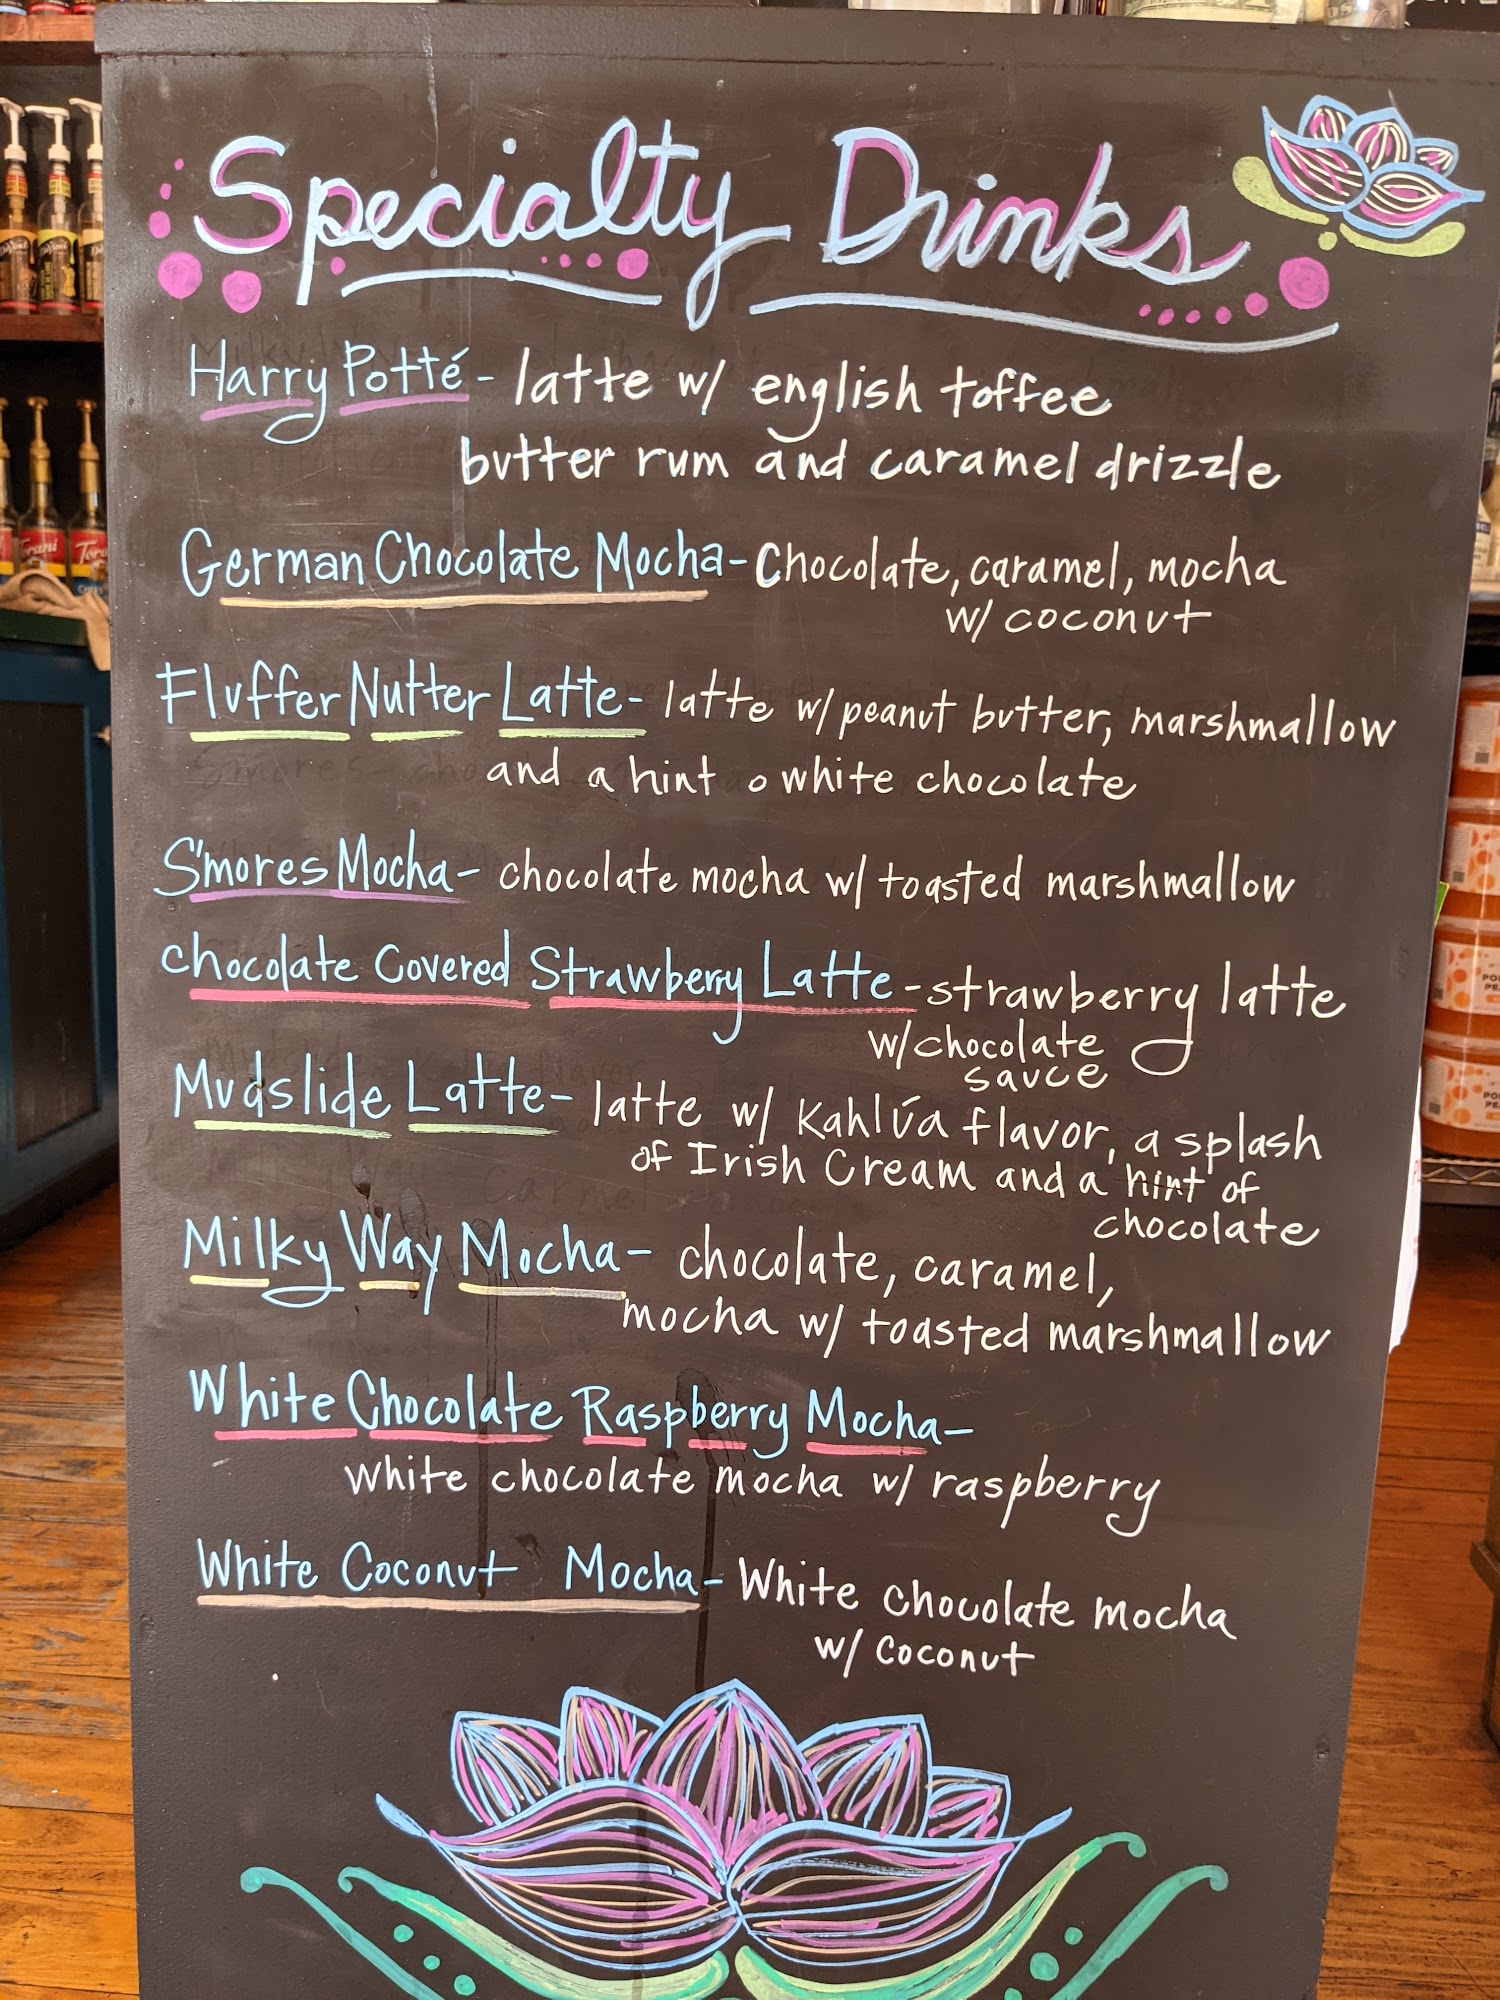 Specialty Drinks
Harry Potté - latte w/ english toffee
butter rum and caramel drizzle
German Chocolate Mocha - Chocolate, caramel, mocha
w/ coconut
Fluffer Nutter Latte - latte w/ peanut butter, marshmallow
and a hint o white chocolate
S'mores Mocha - chocolate mocha w/ toasted marshmallow
chocolate Covered Strawberry Latte - strawberry latte
w/ chocolate
sauce
Mudslide Latte - latte w/ Kahlúa flavor, a splash
of Irish Cream and a hint of
chocolate
Milky Way Mocha - chocolate, caramel,
mocha w/ toasted marshmallow
White Chocolate Raspberry Mocha -
white chocolate mocha w/ raspberry
White Coconut Mocha - White chocolate mocha
w/ coconut
Torani